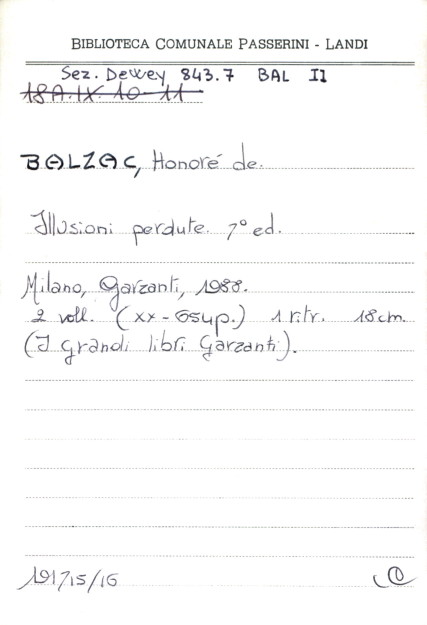 BIBLIOTECA COMUNALE PASSERINI - LANDI
Sez. Dewey 843.7 BAL Il
18A.IX.10-11
BALZAC, Honoré de.
Illusioni perdute. 7° ed.
Milano, Garzanti, 1988.
2 voll. (xx-654p.) 1 ritr. 18cm.
(I grandi libri Garzanti).
191715/16